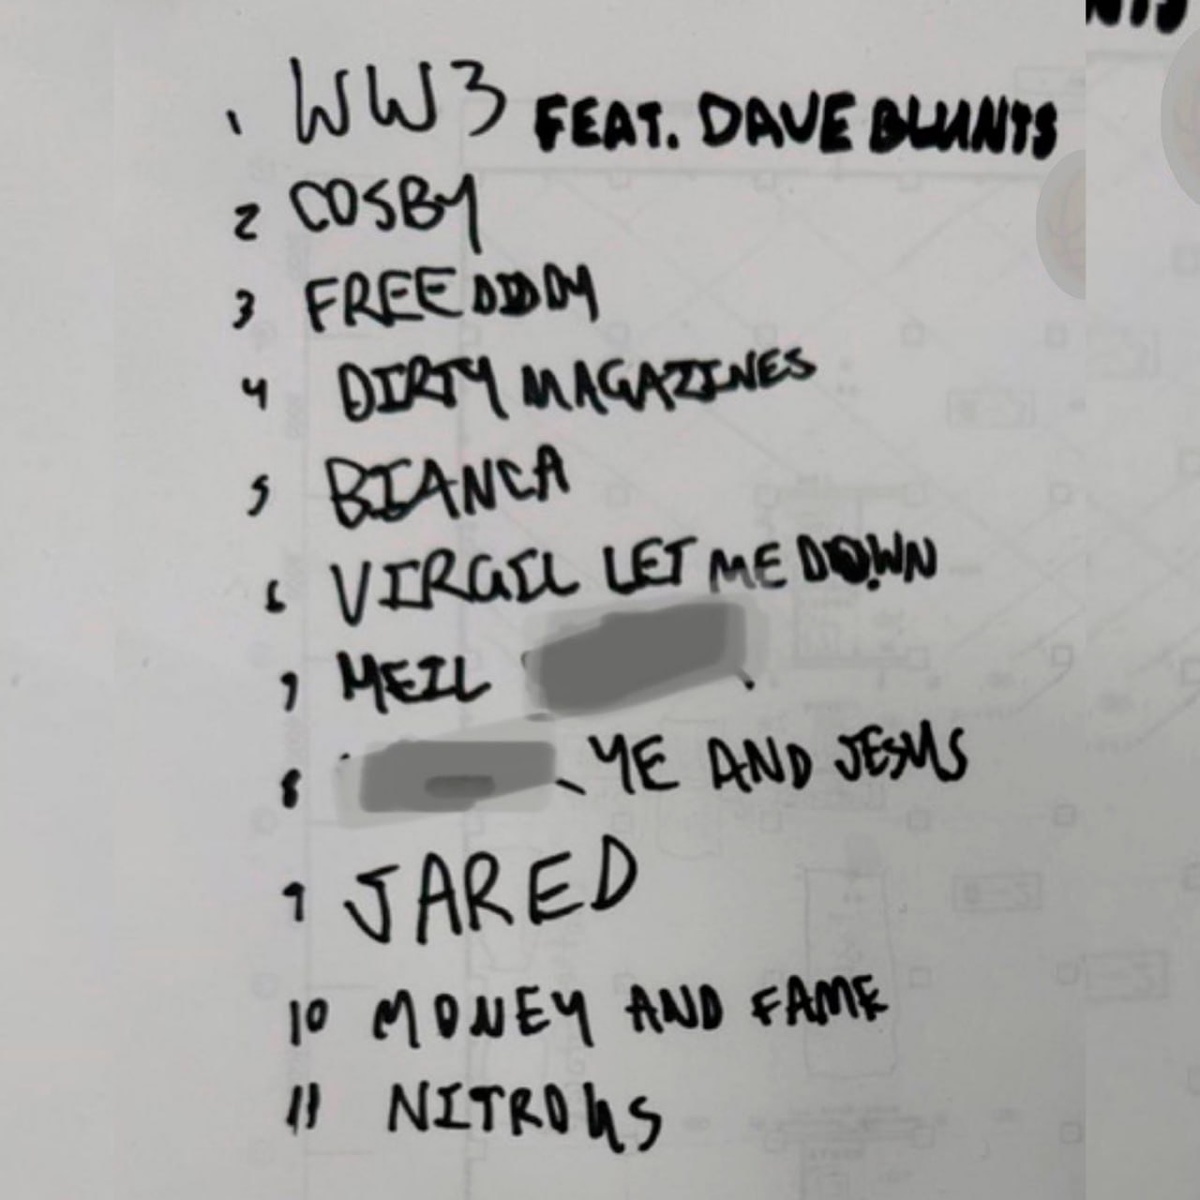 NTS
1 WW3 FEAT. DAVE BLUNTS
2 COSBY
3 FREE DIDDY
4 DIRTY MAGAZINES
5 BIANCA
6 VIRGIL LET ME DOWN
7 HEIL
8 YE AND JESUS
9 JARED
10 MONEY AND FAME
11 NITROUS